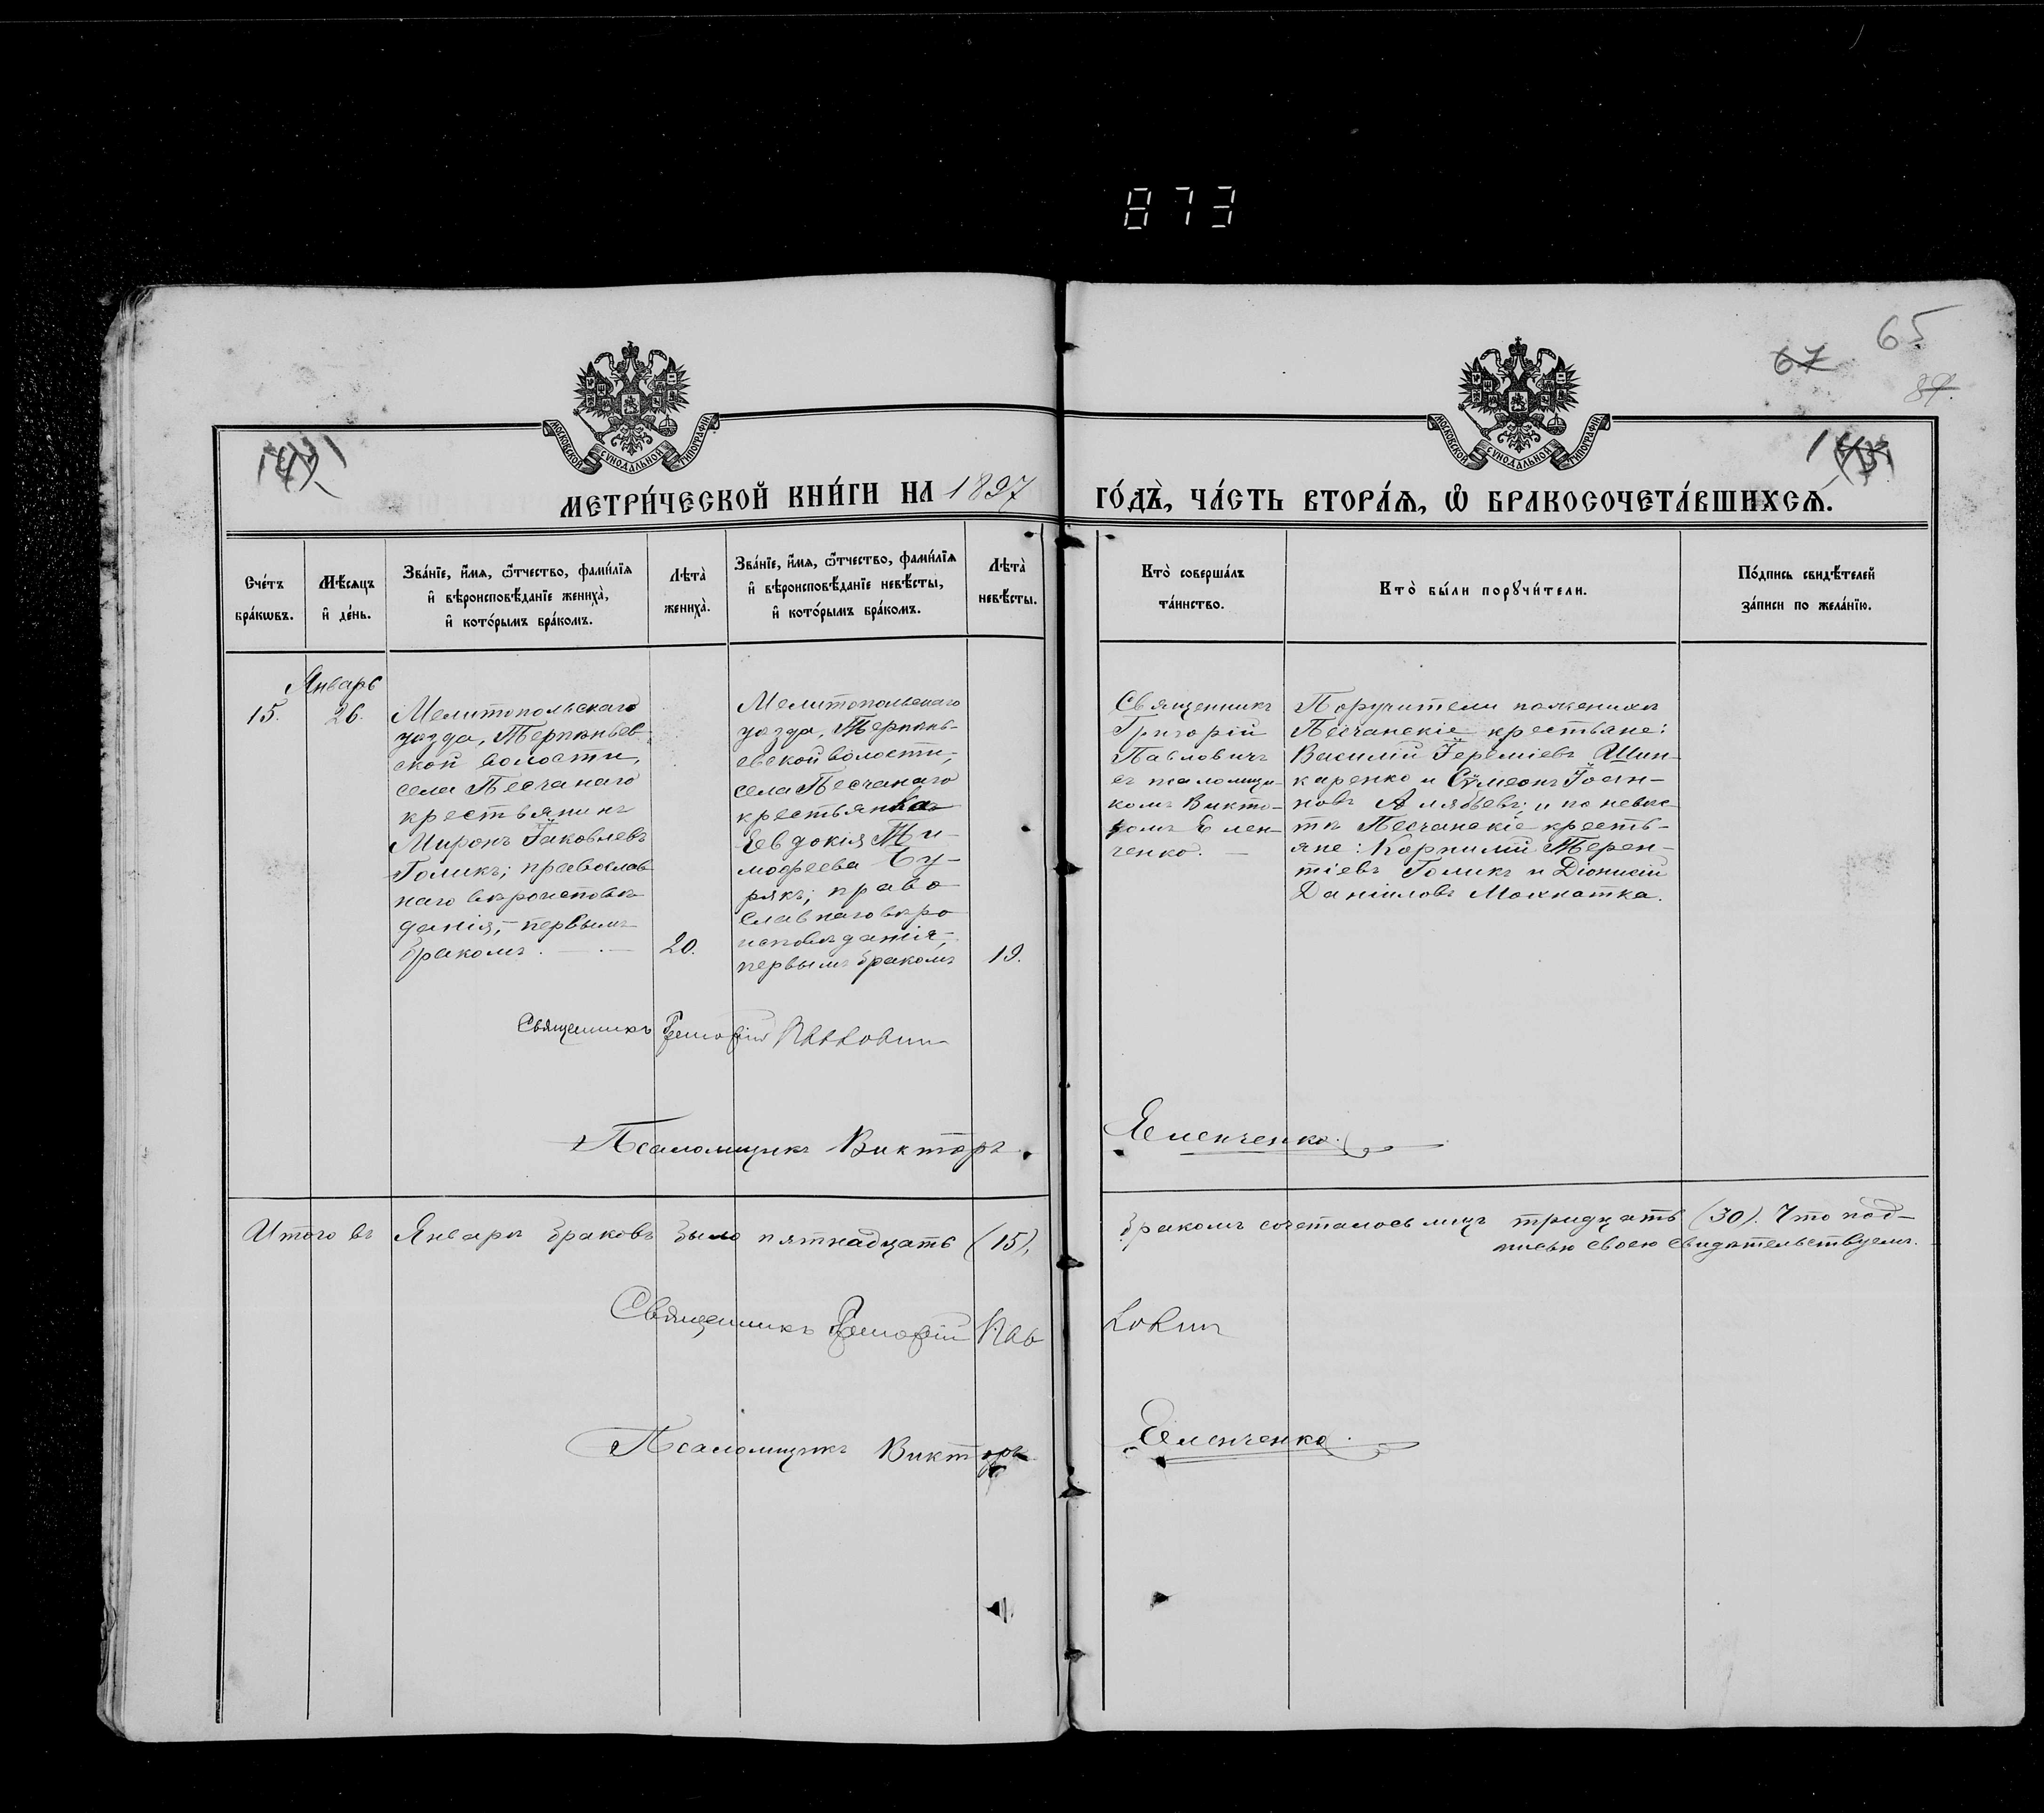 873
65
67
87.
МОСКОВСКОЙ СѴНОДАЛЬНОЙ ТИПОГРАФІИ
МОСКОВСКОЙ СѴНОДАЛЬНОЙ ТИПОГРАФІИ
МЕТРИ́ЧЕСКОЙ КНИ́ГИ НА 1897 ГО́ДЪ, ЧА́СТЬ ВТОРА́Ѧ, Ѡ҆ БРАКОСОЧЕТА́ВШИХСѦ.
Сче́тъ
бра́кѡвъ.
Мѣ́сѧцъ
и҆ де́нь.
Зва́нїе, и҆́мѧ, ѻ҆́тчество, фами́лїѧ
и҆ вѣроисповѣ́данїе жениха̀,
и҆ кото́рымъ бра́комъ.
Лѣта̀
жениха̀.
Зва́нїе, и҆́мѧ, ѻ҆́тчество, фами́лїѧ
и҆ вѣроисповѣ́данїе невѣ́сты,
и҆ кото́рымъ бра́комъ.
Лѣта̀
невѣ́сты.
Кто̀ соверша́лъ
та́инство.
Кто̀ бы́ли порꙋчи́тели.
По́дпись свидѣ́телей
за́писи по жела́нїю.
Январь
15.
26.
Мелитопольскаго
уѣзда, Терпѣньев-
ской волости,
села Песчанаго
крестьянинъ
Миронъ Іаковлевъ
Голикъ; православ
наго вѣроисповѣ
данія, первымъ
бракомъ.
20.
Мелитопольскаго
уѣзда, Терпѣнь-
евской волости,
села Песчанаго
крестьянка
Евдокія Ти-
мофеева Бу-
рякъ; право
славнаго вѣро
исповѣданія,
первымъ бракомъ
19.
Священникъ
Григорій
Павловичъ
съ псаломщи-
комъ Викто-
ромъ Елен-
ченко.
Поручители по женихѣ
Песчанскіе крестьяне:
Василій Іереміевъ Шин-
каренко и Сѵмеонъ Іоан-
новъ Алябьевъ; и по невѣс
тѣ Песчанскіе кресть-
яне: Корнилій Терен-
тіевъ Голикъ и Діонисій
Даніиловъ Мохнатка.
Священникъ Григорій Павловичъ
Псаломщикъ Викторъ Еленченко.
Итого въ Январѣ браковъ было пятнадцать (15), бракомъ сочеталось лицъ тридцать (30). Что под-
писью своею свидѣтельствуемъ.
Священникъ Григорій Павловичъ
Псаломщикъ Викторъ Еленченко.